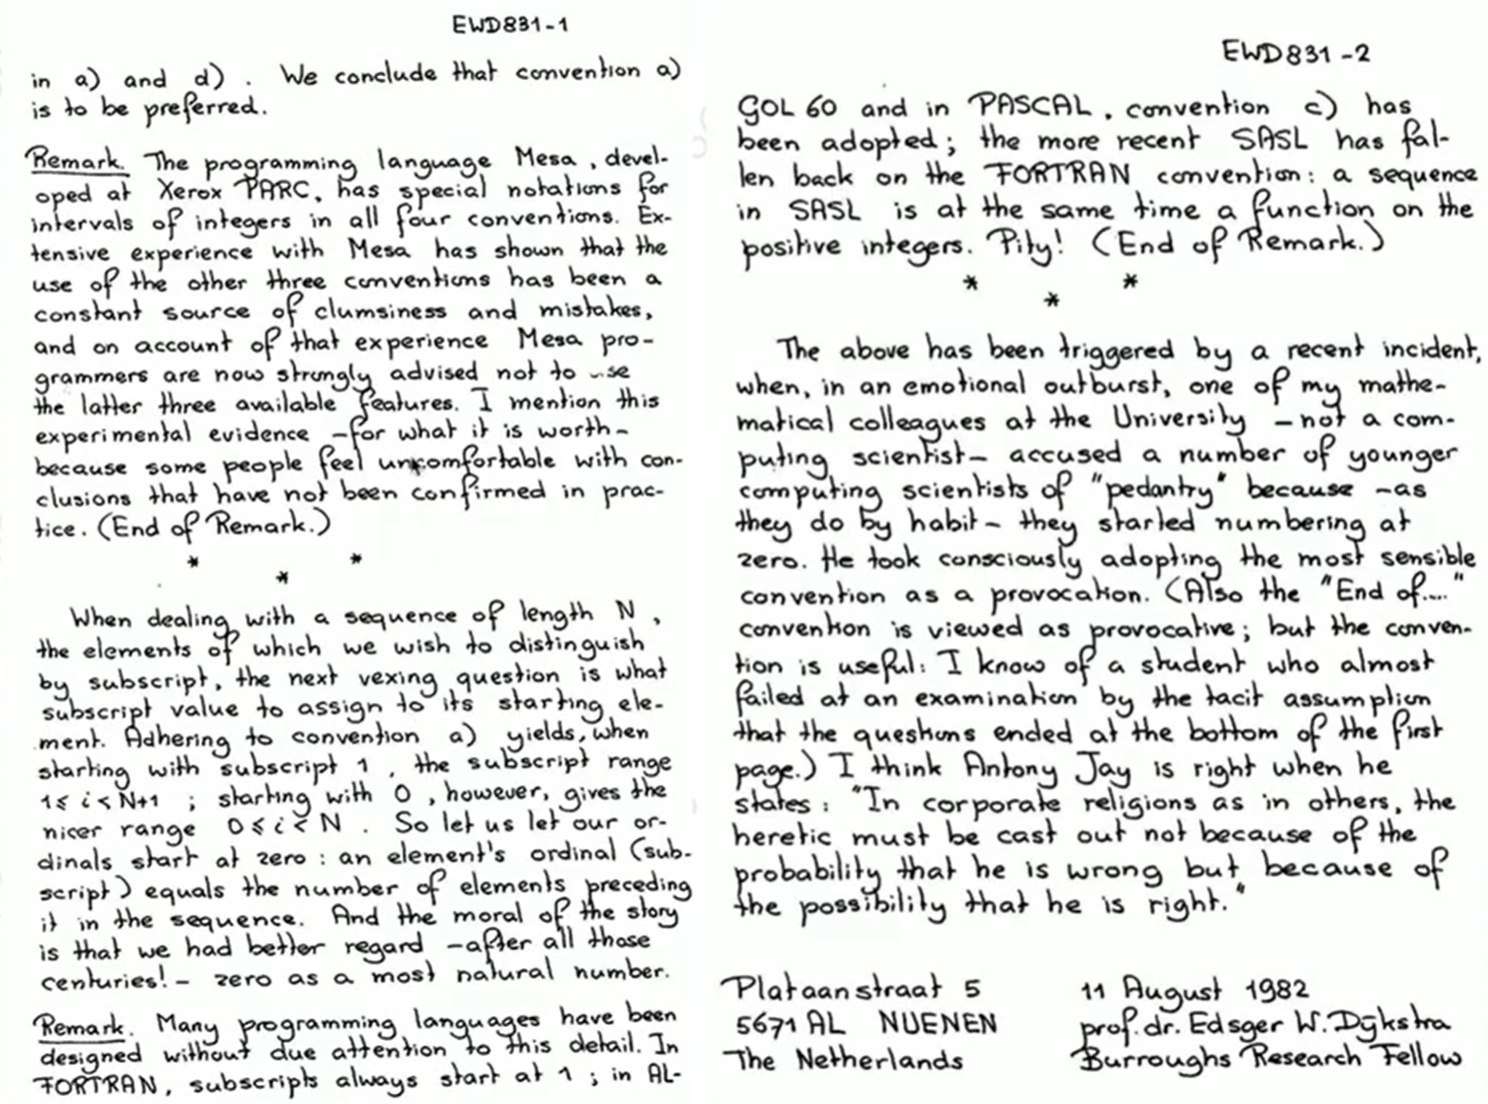 EWD831-1
in a) and d) . We conclude that convention a)
is to be preferred.
Remark. The programming language Mesa, devel-
oped at Xerox PARC, has special notations for
intervals of integers in all four conventions. Ex-
tensive experience with Mesa has shown that the
use of the other three conventions has been a
constant source of clumsiness and mistakes,
and on account of that experience Mesa pro-
grammers are now strongly advised not to use
the latter three available features. I mention this
experimental evidence -for what it is worth-
because some people feel uncomfortable with con-
clusions that have not been confirmed in prac-
tice. (End of Remark.)
* * *
When dealing with a sequence of length N ,
the elements of which we wish to distinguish
by subscript, the next vexing question is what
subscript value to assign to its starting ele-
ment. Adhering to convention a) yields, when
starting with subscript 1 , the subscript range
1 ≤ i < N+1 ; starting with 0 , however, gives the
nicer range 0 ≤ i < N . So let us let our or-
dinals start at zero : an element's ordinal (sub-
script) equals the number of elements preceding
it in the sequence. And the moral of the story
is that we had better regard -after all those
centuries!- zero as a most natural number.
Remark. Many programming languages have been
designed without due attention to this detail. In
FORTRAN, subscripts always start at 1 ; in AL-
EWD831-2
GOL 60 and in PASCAL, convention c) has
been adopted; the more recent SASL has fal-
len back on the FORTRAN convention: a sequence
in SASL is at the same time a function on the
positive integers. Pity! (End of Remark.)
* * *
The above has been triggered by a recent incident,
when, in an emotional outburst, one of my mathe-
matical colleagues at the University -not a com-
puting scientist- accused a number of younger
computing scientists of "pedantry" because -as
they do by habit- they started numbering at
zero. He took consciously adopting the most sensible
convention as a provocation. (Also the "End of...."
convention is viewed as provocative; but the conven-
tion is useful: I know of a student who almost
failed at an examination by the tacit assumption
that the questions ended at the bottom of the first
page.) I think Antony Jay is right when he
states: "In corporate religions as in others, the
heretic must be cast out not because of the
probability that he is wrong but because of
the possibility that he is right."
Plataanstraat 5
5671 AL NUENEN
The Netherlands
11 August 1982
prof.dr. Edsger W. Dijkstra
Burroughs Research Fellow